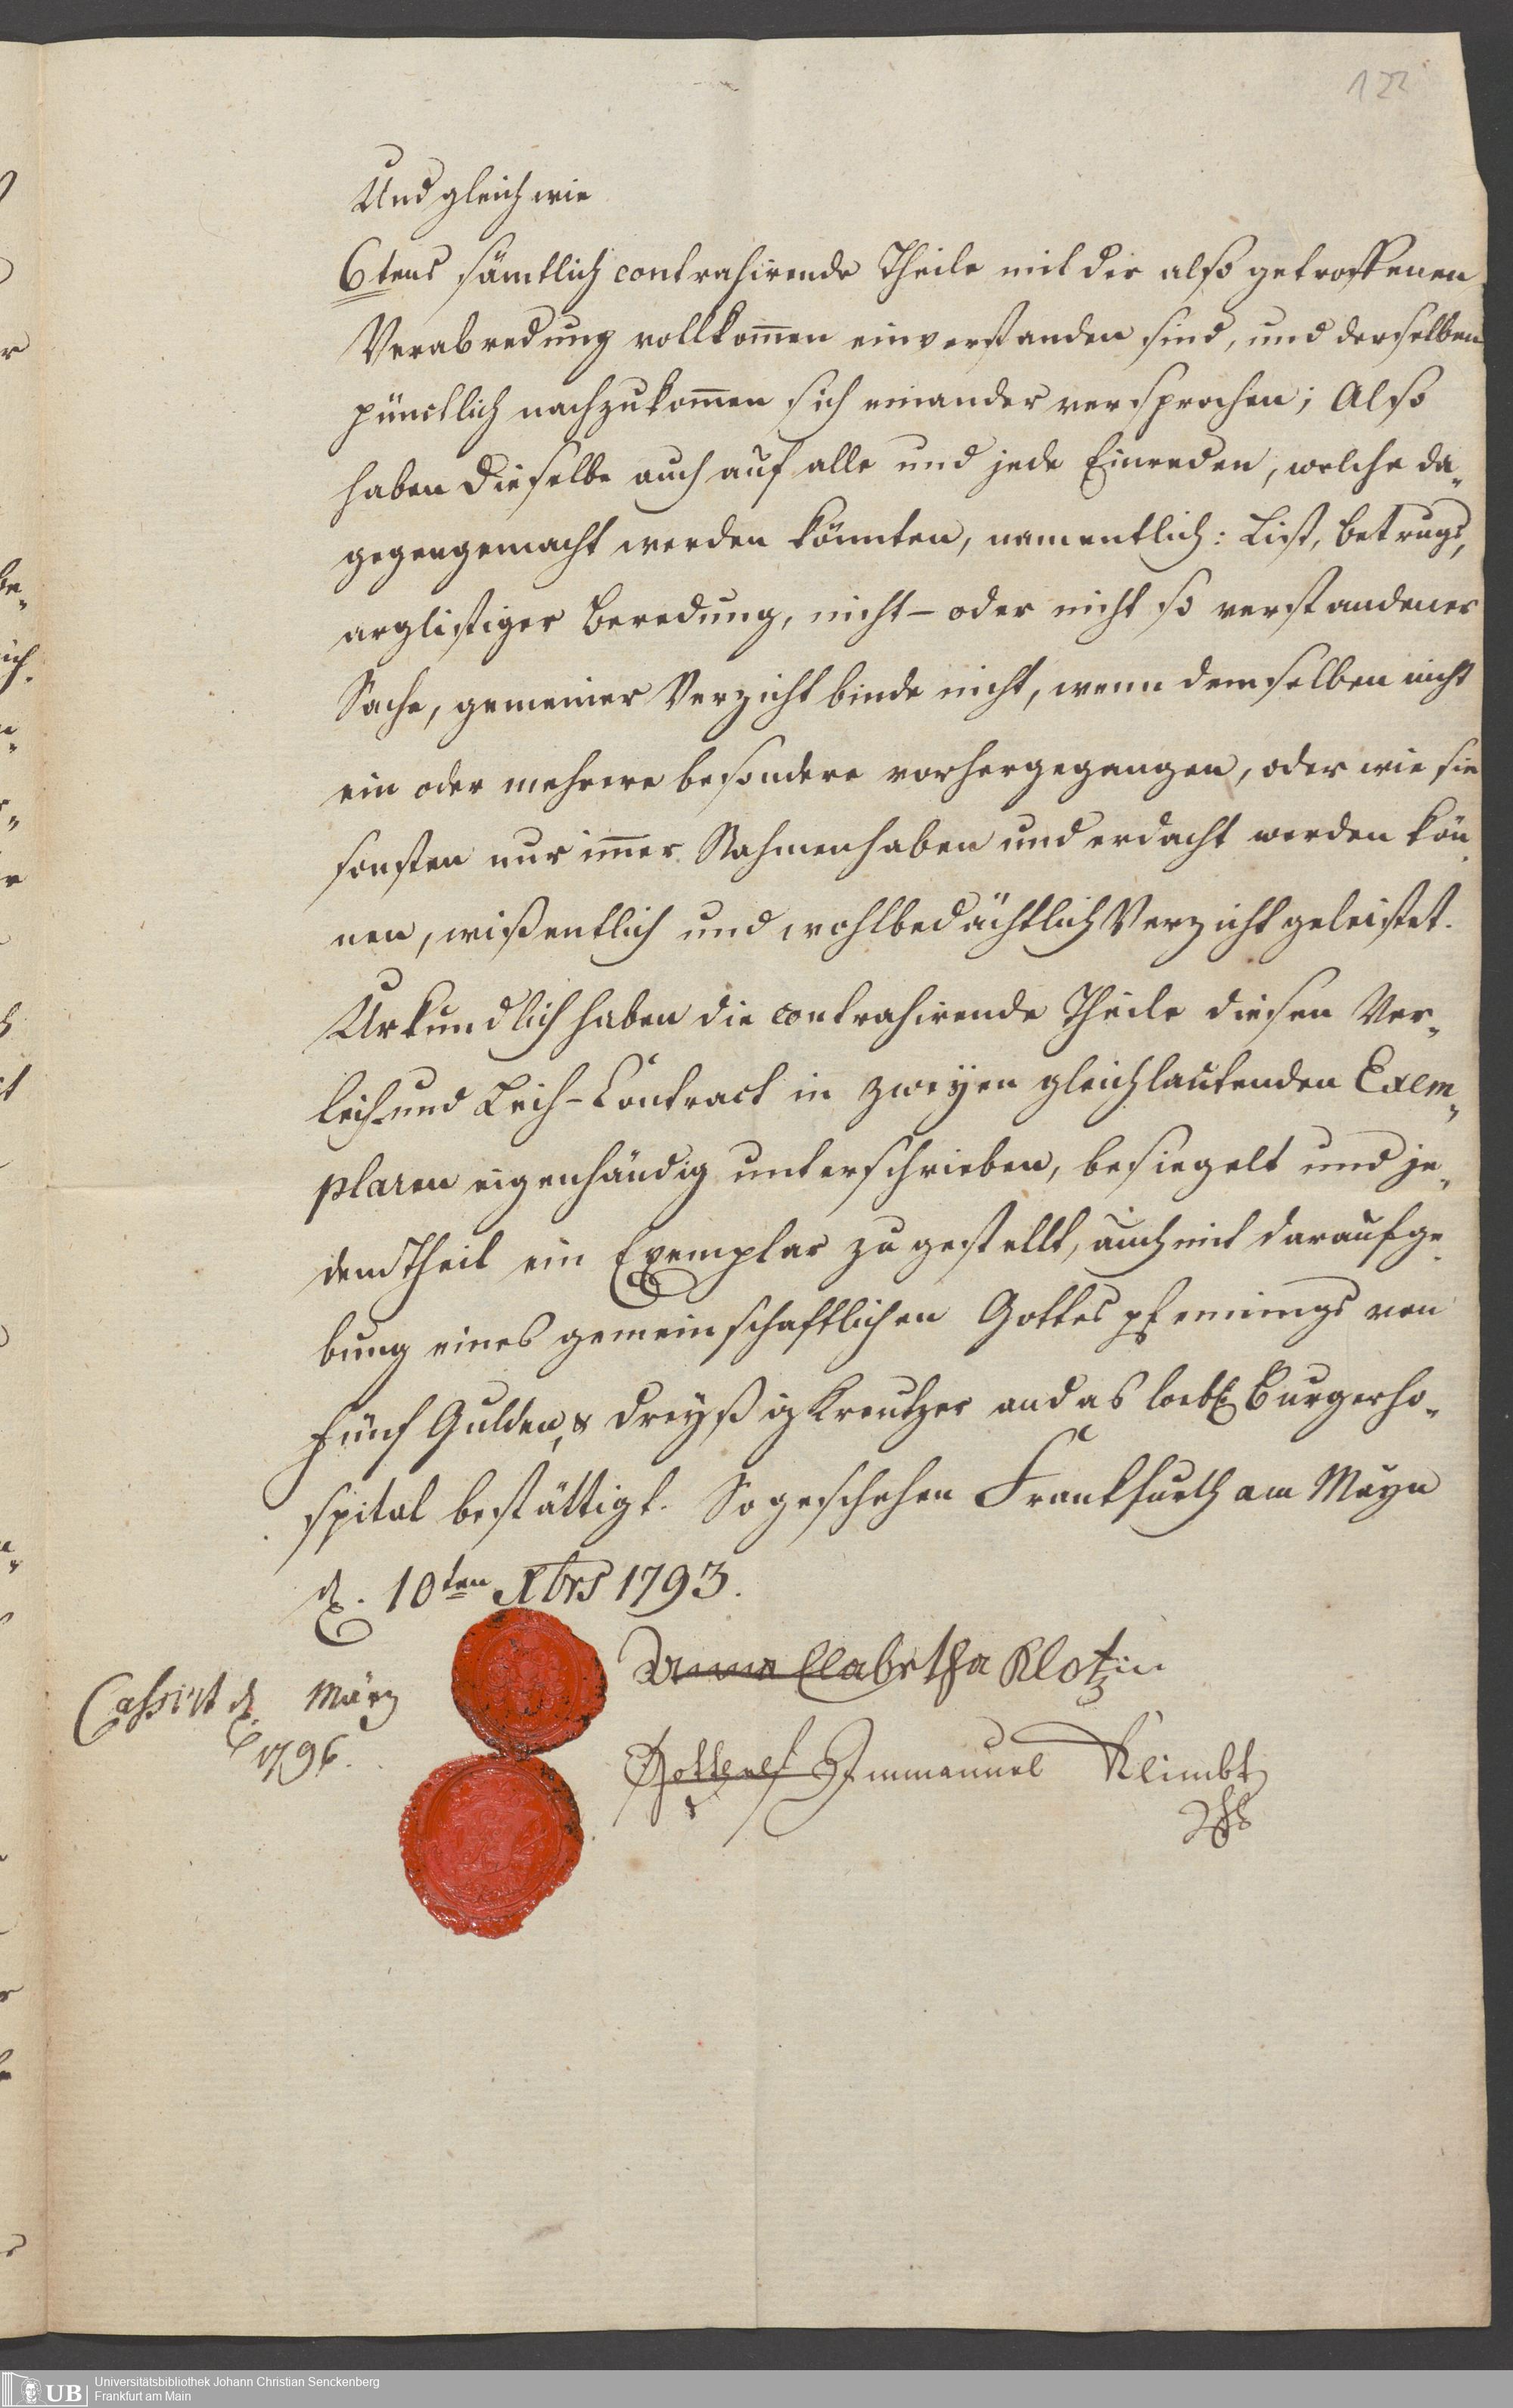 122
Und gleich wie
6tens sämtlich contrahirende Theile mit der also getroffenen
Verabredung vollkom̄en einverstanden sind, und derselben
pünctlich nachzukom̄en sich einander versprochen; Also
haben dieselbe auch auf alle und jede Einreden, welche da„
gegengemacht werden könnten, namentlich: List, Betrugs,
arglistiger Beredung, nicht- oder nicht so verstandener
Sache, gemeiner Verzicht binde nicht, wenn demselben nicht
ein oder mehrere besondere vorhergegangen, oder wie sie
sonsten nur im̄er Nahmen haben und erdacht werden kön„
nen, wißentlich und wohlbedächtlich Verzicht geleistet.
Urkundlich haben die contrahirende Theile diesen Ver„
leih und Leih-Contract in zweyen gleichlautenden Exem„
plaren eigenhändig unterschrieben, besiegelt und je„
dem Theil ein Exemplar zugestellt, auch mit daraufge„
bung eines gemeinschaftlichen Gottespfennings von
fünf Gulden, & dreyßig Kreutzer an das loebl. Burgerho„
spital bestättigt. So geschehen Frankfurth am Mayn
d. 10ten Xbrs 1793.
Anna Elabetha Klotzin
Cassirt d. März
1796.
Gotthelf Immanuel Klimbt
Universitätsbibliothek Johann Christian Senckenberg
UB Frankfurt am Main